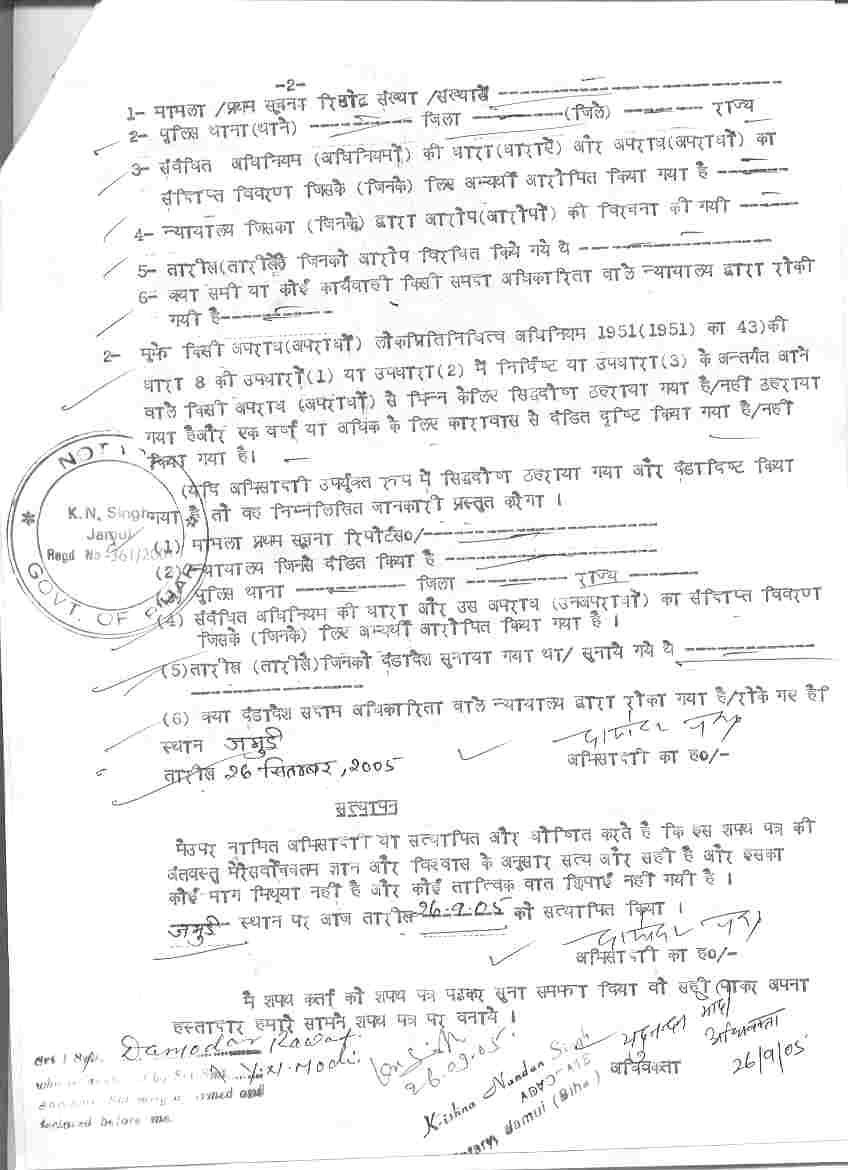 -2-
1- मामला /प्रथम सूचना रिपोर्ट संख्या /संख्यायें
2- पुलिस थाना(थाने) जिला (जिले) राज्य
3- संबंधित अधिनियम (अधिनियमों) की धारा(धाराएँ) और अपराध(अपराधों) का
संक्षिप्त विवरण जिसके (जिनके) लिए अभ्यर्थी आरोपित किया गया है
4- न्यायालय जिसका (जिनके) द्वारा आरोप(आरोपों) की विरचना की गयी
5- तारीख(तारीखें) जिनको आरोप विरचित किये गये थे
6- क्या सभी या कोई कार्यवाही किसी सक्षम अधिकारिता वाले न्यायालय द्वारा रोकी
गयी है
2- मुझे किसी अपराध(अपराधों) लोकप्रतिनिधित्व अधिनियम 1951(1951) का 43)की
धारा 8 की उपधारों(1) या उपधारा(2) में निर्दिष्ट या उपधारा(3) के अन्तर्गत आने
वाले किसी अपराध (अपराधों) से भिन्न केलिए सिद्धदोष ठहराया गया है/नहीं ठहराया
गया हैऔर एक वर्ष या अधिक के लिए कारावास से दंडित दृष्टि किया गया है/नहीं
किया गया है।
(यदि अभिसाक्षी उपर्युक्त रूप में सिद्धदोष ठहराया गया और दंडादिष्ट किया
गया है तो वह निम्नलिखित जानकारी प्रस्तुत करेगा ।
(1) मामला प्रथम सूचना रिपोर्टस०/-
(2) न्यायालय जिनसे दंडित किया है
पुलिस थाना जिला राज्य
(4) संबंधित अधिनियम की धारा और उस अपराध (उनअपराधों) का संक्षिप्त विवरण
जिसके (जिनके) लिए अभ्यर्थी आरोपित किया गया है ।
(5)तारीख (तारीखें)जिनको दंडादेश सुनाया गया था/ सुनाये गये थे
(6) क्या दंडादेश सक्षम अधिकारिता वाले न्यायालय द्वारा रोका गया है/रोके गए है।
स्थान जमुई
तारीख 26 सितम्बर, 2005
अभिसाक्षी का ह0/-
सत्यापन
मैउपर नामित अभिसाक्षी या सत्यापित और घोषित करते है कि इस शपथ पत्र की
अंतवस्तु मेरेसर्वोच्चतम ज्ञान और विश्वास के अनुसार सत्य और सही है और इसका
कोई भाग मिथ्या नहीं है और कोई तात्विक बात छिपाई नहीं गयी है ।
जमुई स्थान पर आज तारीख 26.9.05 को सत्यापित किया ।
अभिसाक्षी का ह0/-
मै शपथ कर्ता को शपथ पत्र पढकर सुना समझा दिया वो सही पाकर अपना
हस्ताक्षर हमारे सामने शपथ पत्र पर बनाये ।
Damodar Rawat
26.09.05
Krishna Nandan Singh
ADVOCATE
Jamui (Bihar)
अधिवक्ता
अधिवक्ता
26/9/05
before me
NOT
K.N. Singh
Jamui
Regd No-361/200
GOVT. OF BIHAR